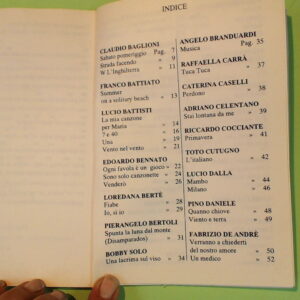 INDICE
CLAUDIO BAGLIONI
Sabato pomeriggio Pag. 7
Strada facendo » 9
W L'Inghilterra » 11
FRANCO BATTIATO
Summer
on a solitary beach » 13
LUCIO BATTISTI
La mia canzone
per Maria » 14
7 e 40 » 16
Una » 19
Vento nel vento » 21
EDOARDO BENNATO
Ogni favola è un gioco » 22
Sono solo canzonette » 24
Venderò » 26
LOREDANA BERTÈ
Fiabe » 28
Io, sì io » 29
PIERANGELO BERTOLI
Spunta la luna dal monte
(Disamparados) » 31
BOBBY SOLO
Una lacrima sul viso » 34
ANGELO BRANDUARDI
Musica Pag. 35
RAFFAELLA CARRÀ
Tuca Tuca » 37
CATERINA CASELLI
Perdono » 38
ADRIANO CELENTANO
Stai lontana da me » 39
RICCARDO COCCIANTE
Primavera » 41
TOTO CUTUGNO
L'italiano » 42
LUCIO DALLA
Mambo » 44
Milano » 46
PINO DANIELE
Quanno chiove » 48
Viento e terra » 49
FABRIZIO DE ANDRÈ
Verranno a chiederti
del nostro amore » 50
Un medico » 52